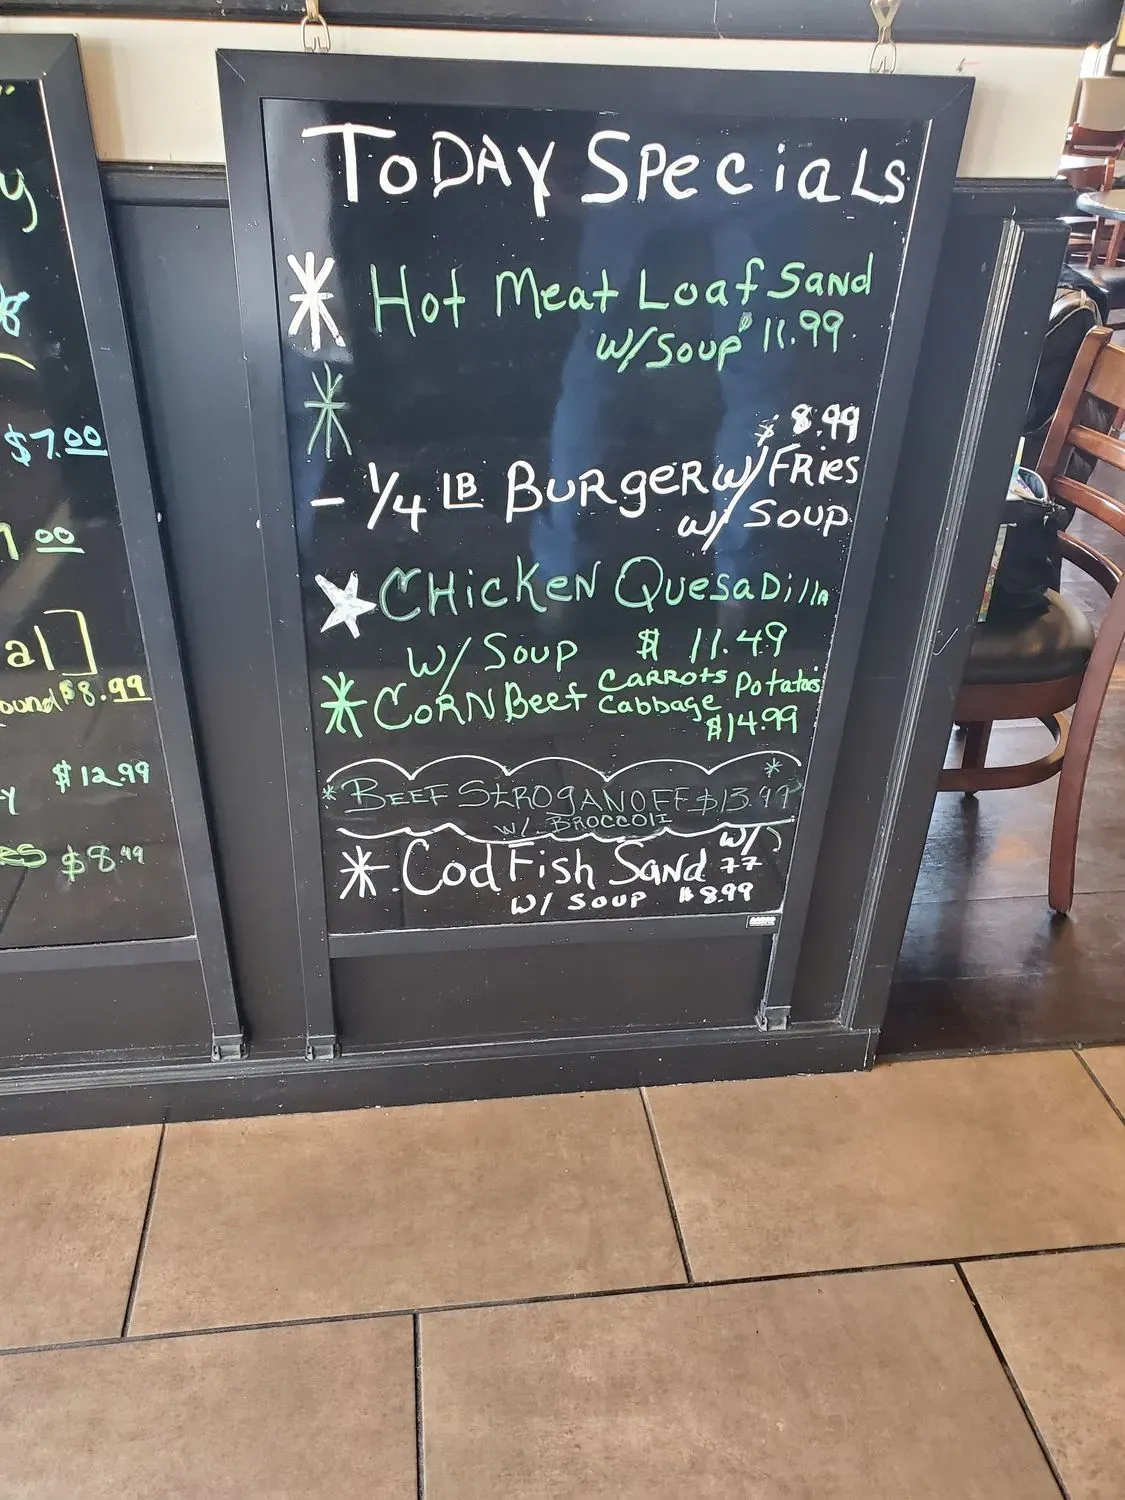 y
$7.00
00
al]
ound $8.99
$12.99
y
es $8.49
ToDAY SPeciaLs
Hot Meat Loaf Sand
W/Soup $11.99
$8.99
- 1/4 LB BURgeR w/ FRies
w/ Soup
CHicKeN QuesaDilla
W/ Soup $11.49
CoRN Beef CaRRots Potatoes
Cabbage
$14.99
BEEF STROgANOFF $13.99
w/ BROCCOLI
Cod Fish Sand w/
FF
W/ Soup $8.99